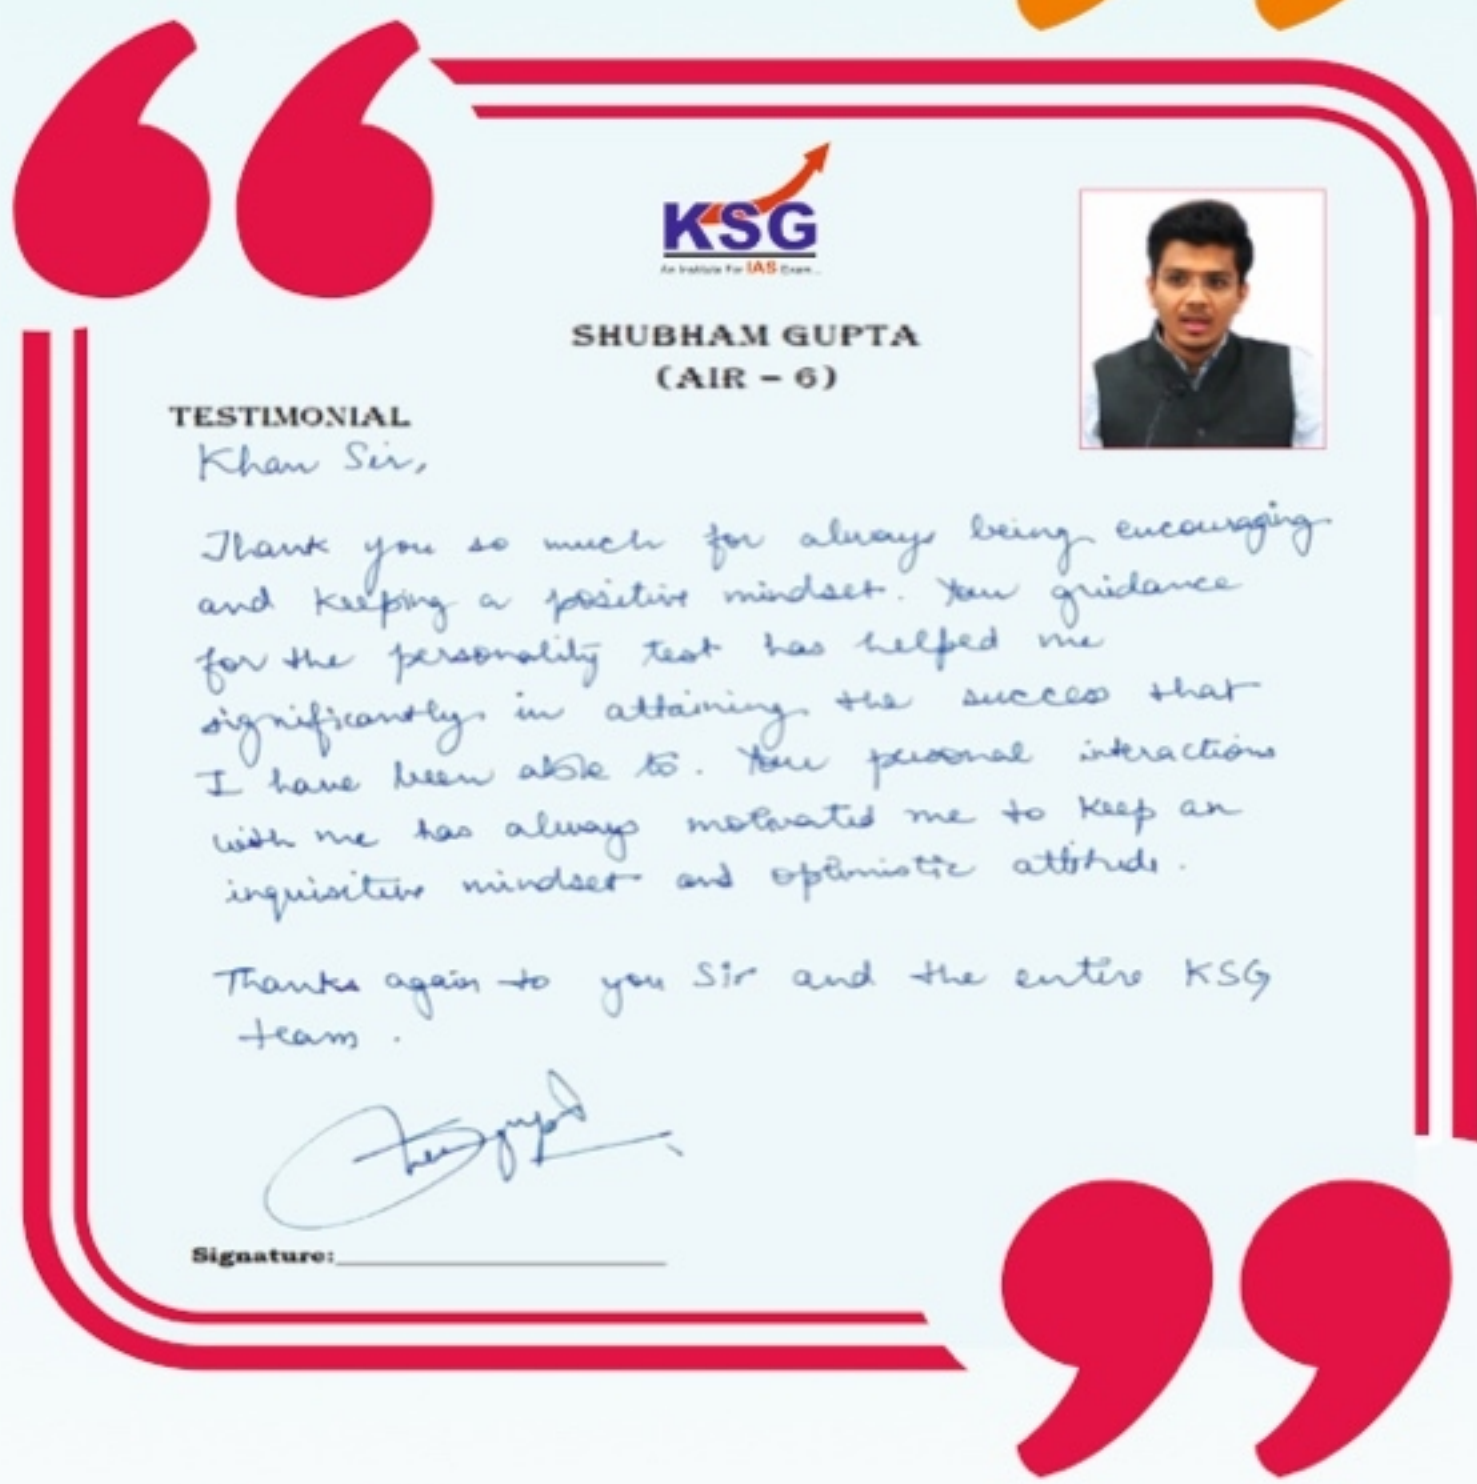 KSG
An Institute For IAS Exam...
SHUBHAM GUPTA
(AIR – 6)
TESTIMONIAL
Khan Sir,
Thank you so much for always being encouraging
and keeping a positive mindset. Your guidance
for the personality test has helped me
significantly in attaining the success that
I have been able to. Your personal interactions
with me has always motivated me to keep an
inquisitive mindset and optimistic attitude.
Thanks again to you Sir and the entire KSG
team.
Signature: